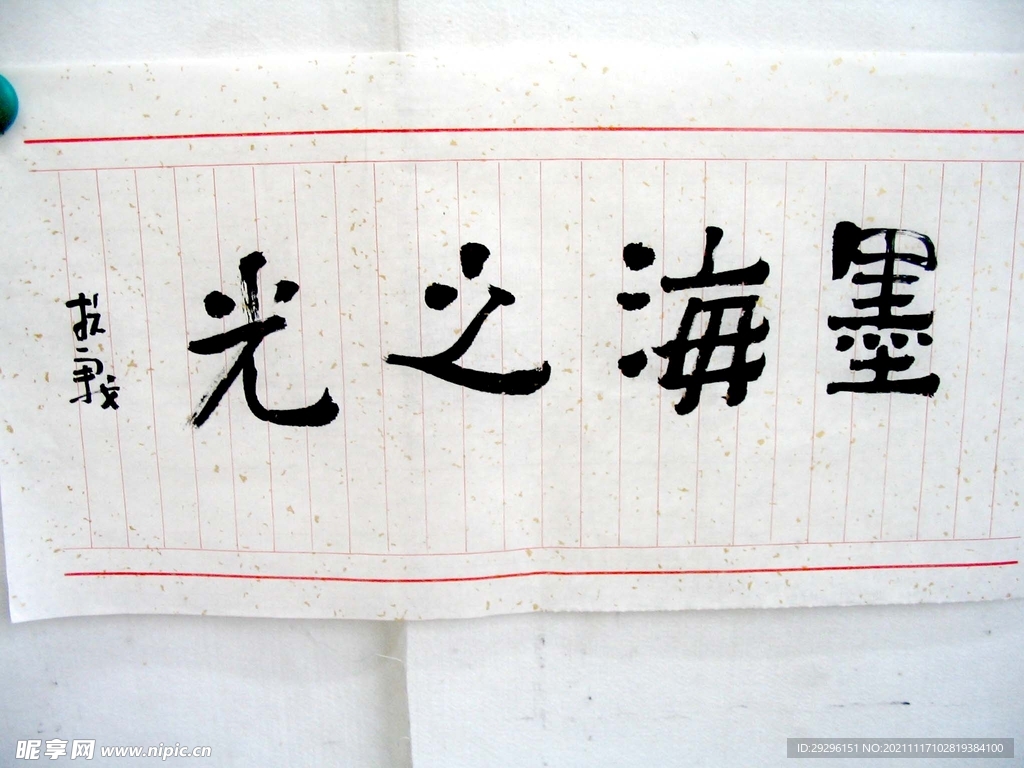 墨海之光
昵享网 www.nipic.cn
ID:29296151 NO:20211117102819384100